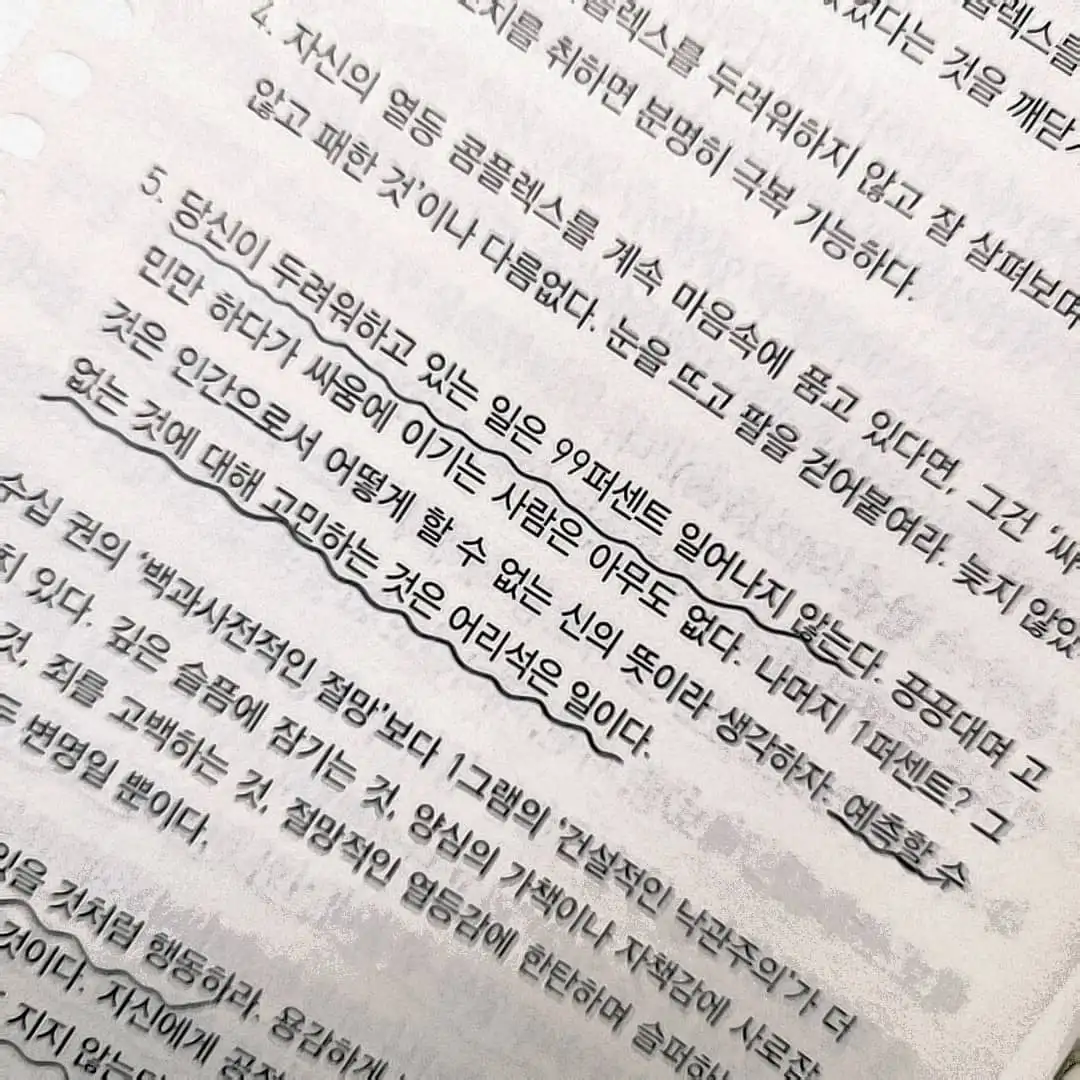 플렉스를
없었다는 것을 깨닫게
플렉스를 두려워하지 않고 잘 살펴보며
취하면 분명히 극복 가능하다.
4. 자신의 열등 콤플렉스를 계속 마음속에 품고 있다면, 그건 '싸
않고 패한 것'이나 다름없다. 눈을 뜨고 팔을 걷어붙여라. 늦지 않았
5. 당신이 두려워하고 있는 일은 99퍼센트 일어나지 않는다. 끙끙대며 고
민만 하다가 싸움에 이기는 사람은 아무도 없다. 나머지 1퍼센트? 그
것은 인간으로서 어떻게 할 수 없는 신의 뜻이라 생각하자. 예측할 수
없는 것에 대해 고민하는 것은 어리석은 일이다.
수십 권의 '백과사전적인 절망'보다 1그램의 '건설적인 낙관주의'가 더
치 있다. 깊은 슬픔에 잠기는 것, 양심의 가책이나 자책감에 사로잡
것, 죄를 고백하는 것, 절망적인 열등감에 한탄하며 슬퍼하
변명일 뿐이다.
있을 것처럼 행동하라. 용감하게
것이다. 자신에게
지지 않는